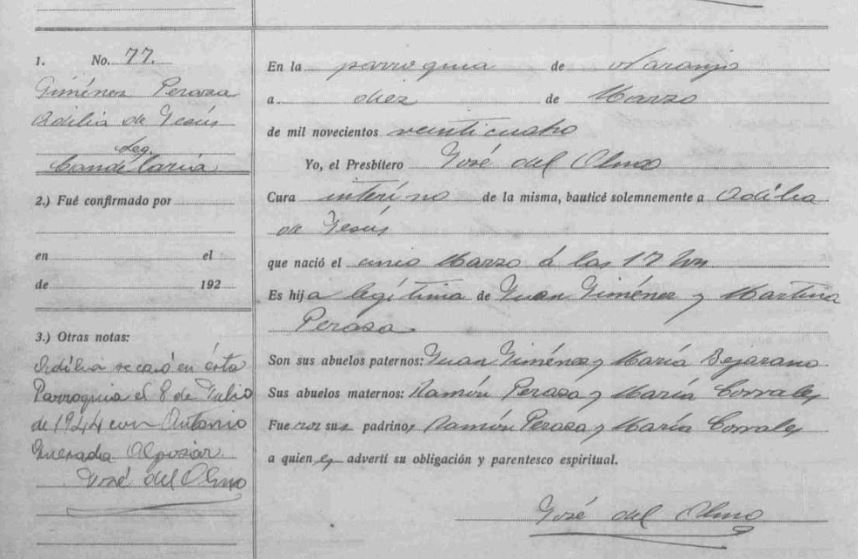 1. No. 77.
Giménez Peraza
Odilia de Jesús
Leg.
Candelaria
2.) Fué confirmado por
en el
de 192
3.) Otras notas:
Odilia se casó en ésta
Parroquia el 8 de Julio
de 1944 con Antonio
Quesada Alpízar
José del Olmo
En la parroquia de Naranjo
a diez de Marzo
de mil novecientos veinticuatro
Yo, el Presbítero José del Olmo
Cura interino de la misma, bauticé solemnemente a Odilia
de Jesús
que nació el cinco Marzo á las 17 hrs
Es hija legítima de Juan Giménez y Martina
Peraza
Son sus abuelos paternos: Juan Giménez y María Bejarano
Sus abuelos maternos: Ramón Peraza y María Corrales
Fueron sus padrinos Ramón Peraza y María Corrales
a quienes advertí su obligación y parentesco espiritual.
José del Olmo